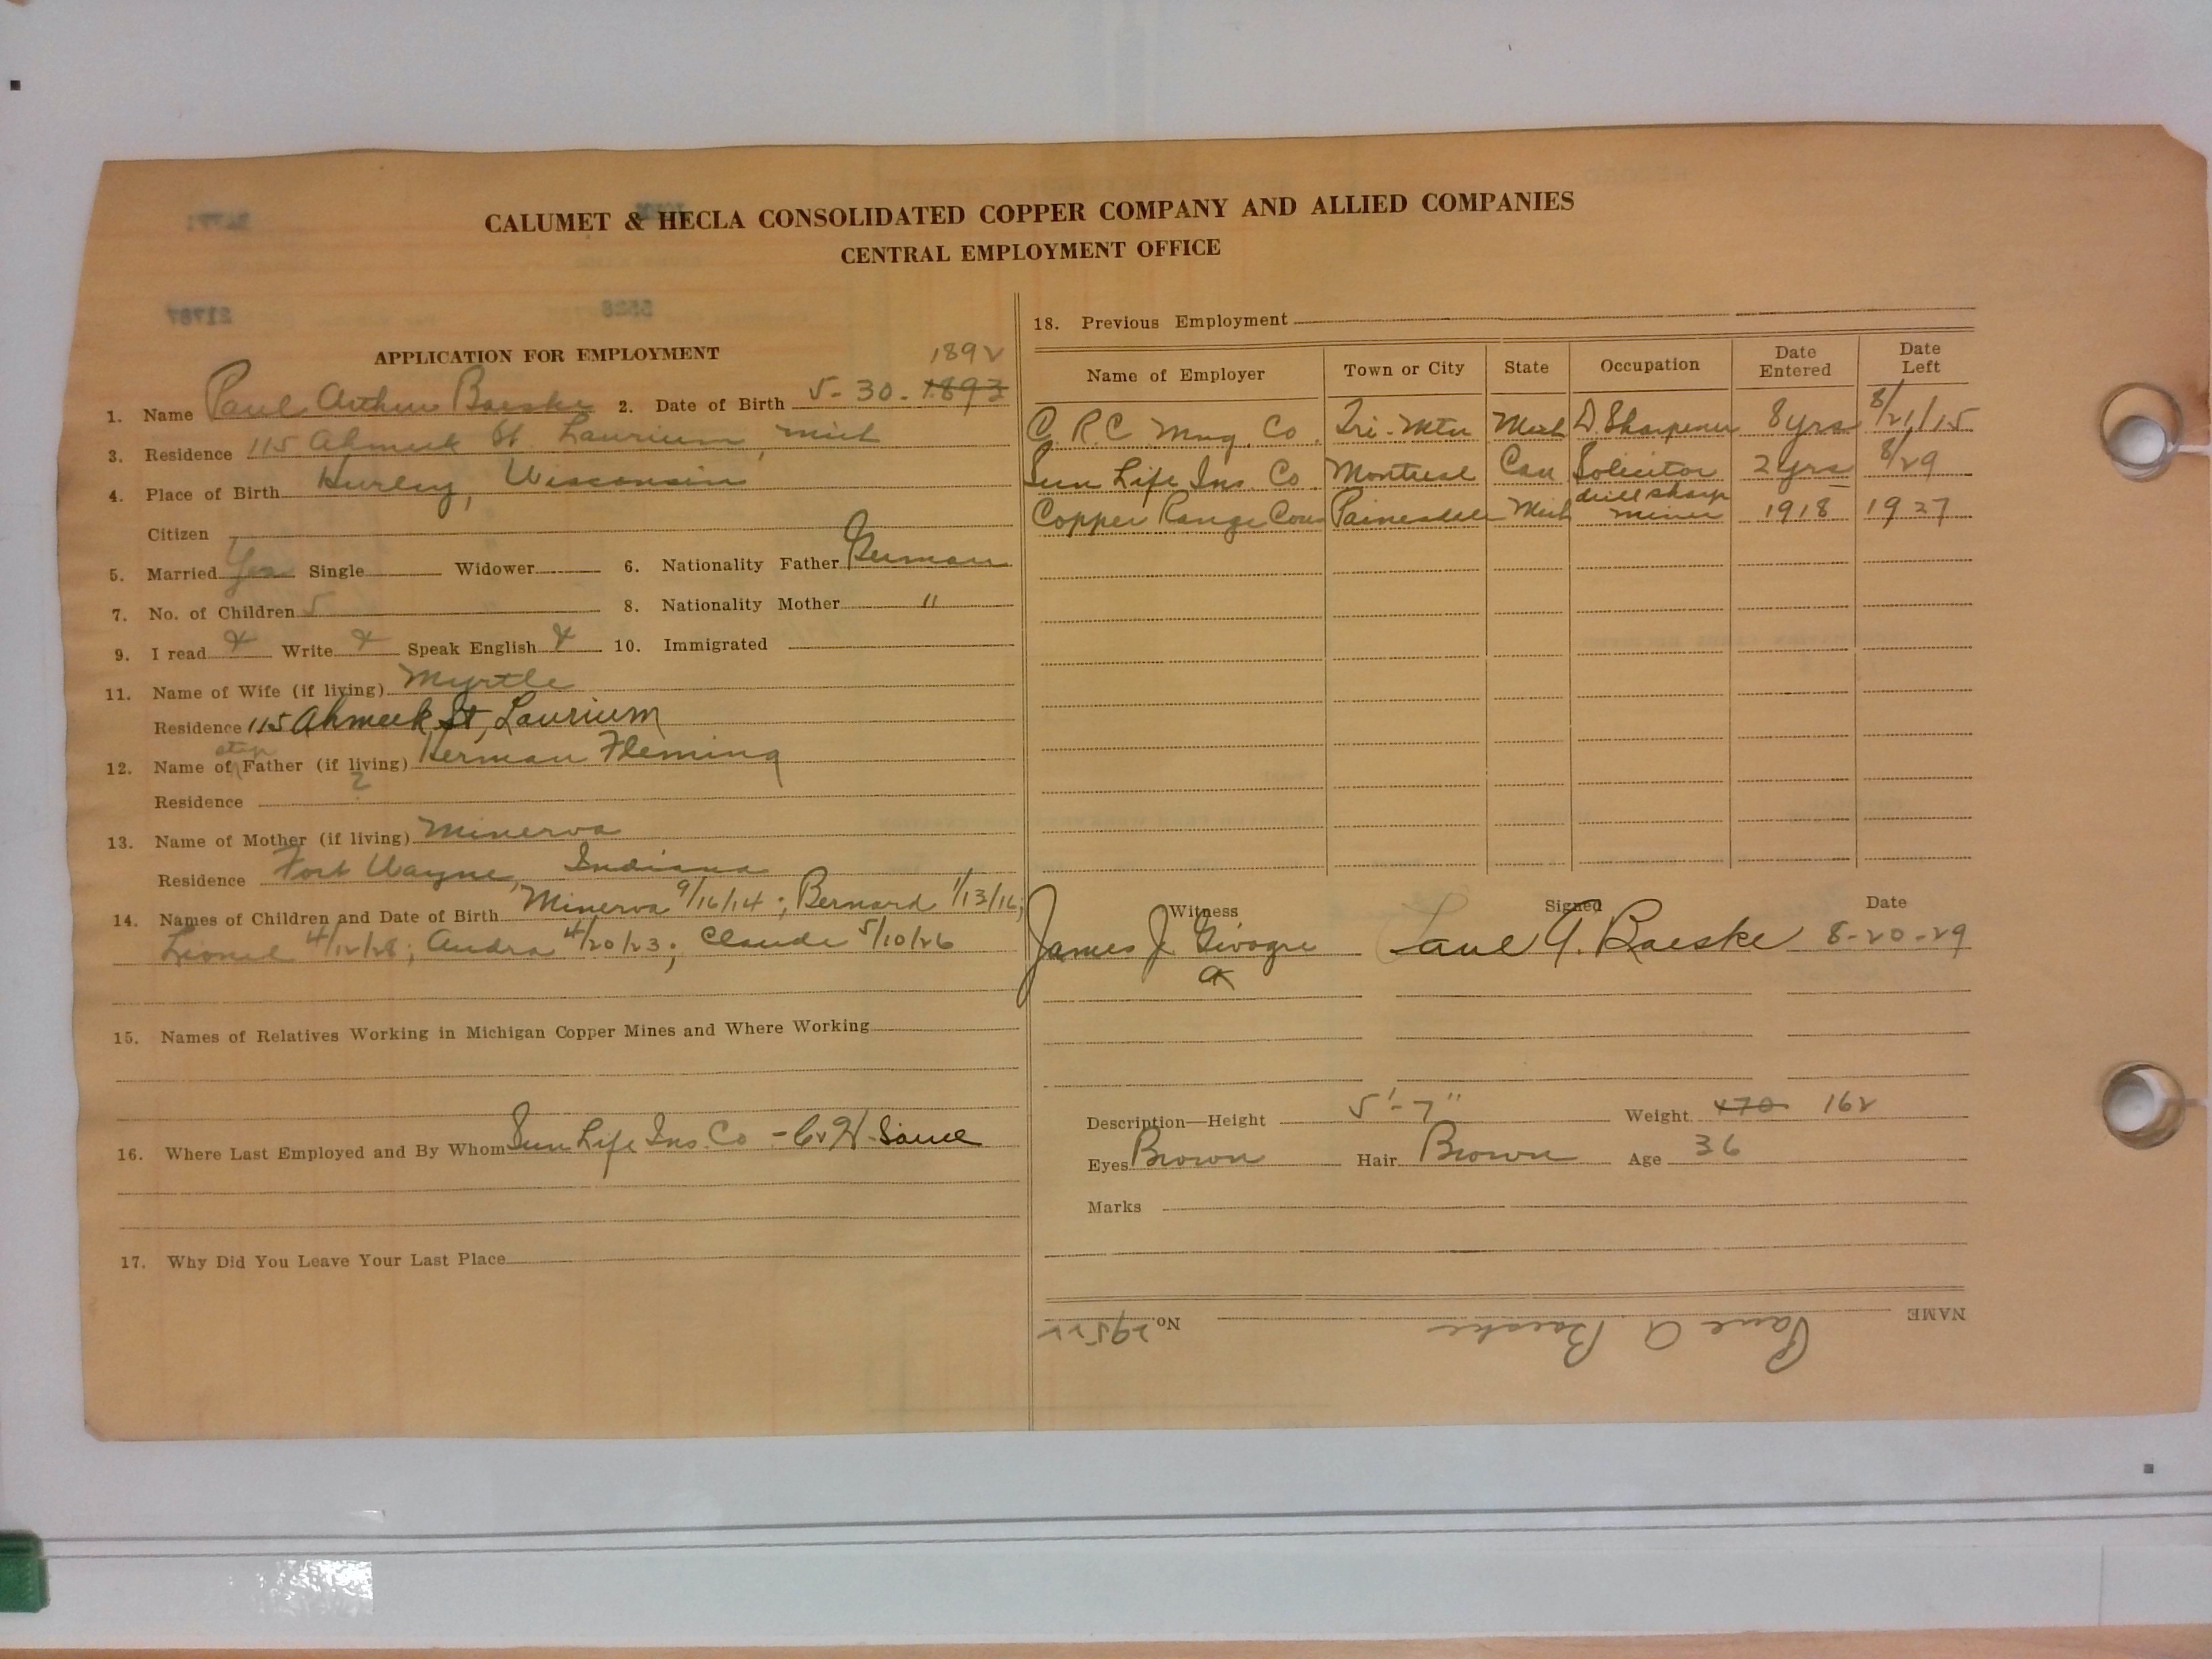 CALUMET & HECLA CONSOLIDATED COPPER COMPANY AND ALLIED COMPANIES
CENTRAL EMPLOYMENT OFFICE
21787 5528
APPLICATION FOR EMPLOYMENT
1892
1. Name Paul Arthur Baeske 2. Date of Birth 5-30-1893
3. Residence 115 Ahmeek St Laurium, Mich
4. Place of Birth Hurley, Wisconsin
Citizen
5. Married Yes Single Widower 6. Nationality Father German
7. No. of Children 5 8. Nationality Mother "
9. I read Write Speak English 10. Immigrated
11. Name of Wife (if living) Myrtle
Residence 115 Ahmeek St, Laurium
step
12. Name of Father (if living) Herman Fleming
Residence ?
13. Name of Mother (if living) Minerva
Residence Fort Wayne, Indiana
14. Names of Children and Date of Birth Minerva 9/16/14; Bernard 1/13/16;
Lionel; Audra 4/20/23; Claude 5/10/26
15. Names of Relatives Working in Michigan Copper Mines and Where Working
16. Where Last Employed and By Whom Sun Life Ins. Co - C&H - Same
17. Why Did You Leave Your Last Place
18. Previous Employment
Name of Employer Town or City State Occupation Date Entered Date Left
C.R.C Mng. Co. Tri-Mtn Mich D. Sharpener 8 yrs 8/21/15
Sun Life Ins. Co Montreal Can Solicitor 2 yrs 8/29
Copper Range Con Painesdale Mich drill sharp miner 1918 1927
Witness Signed Date
James J Paul A. Baeske 8-20-29
Description—Height 5'-7" Weight 170 162
Eyes Brown Hair Brown Age 36
Marks
NAME Paul A Baeske No. 29522